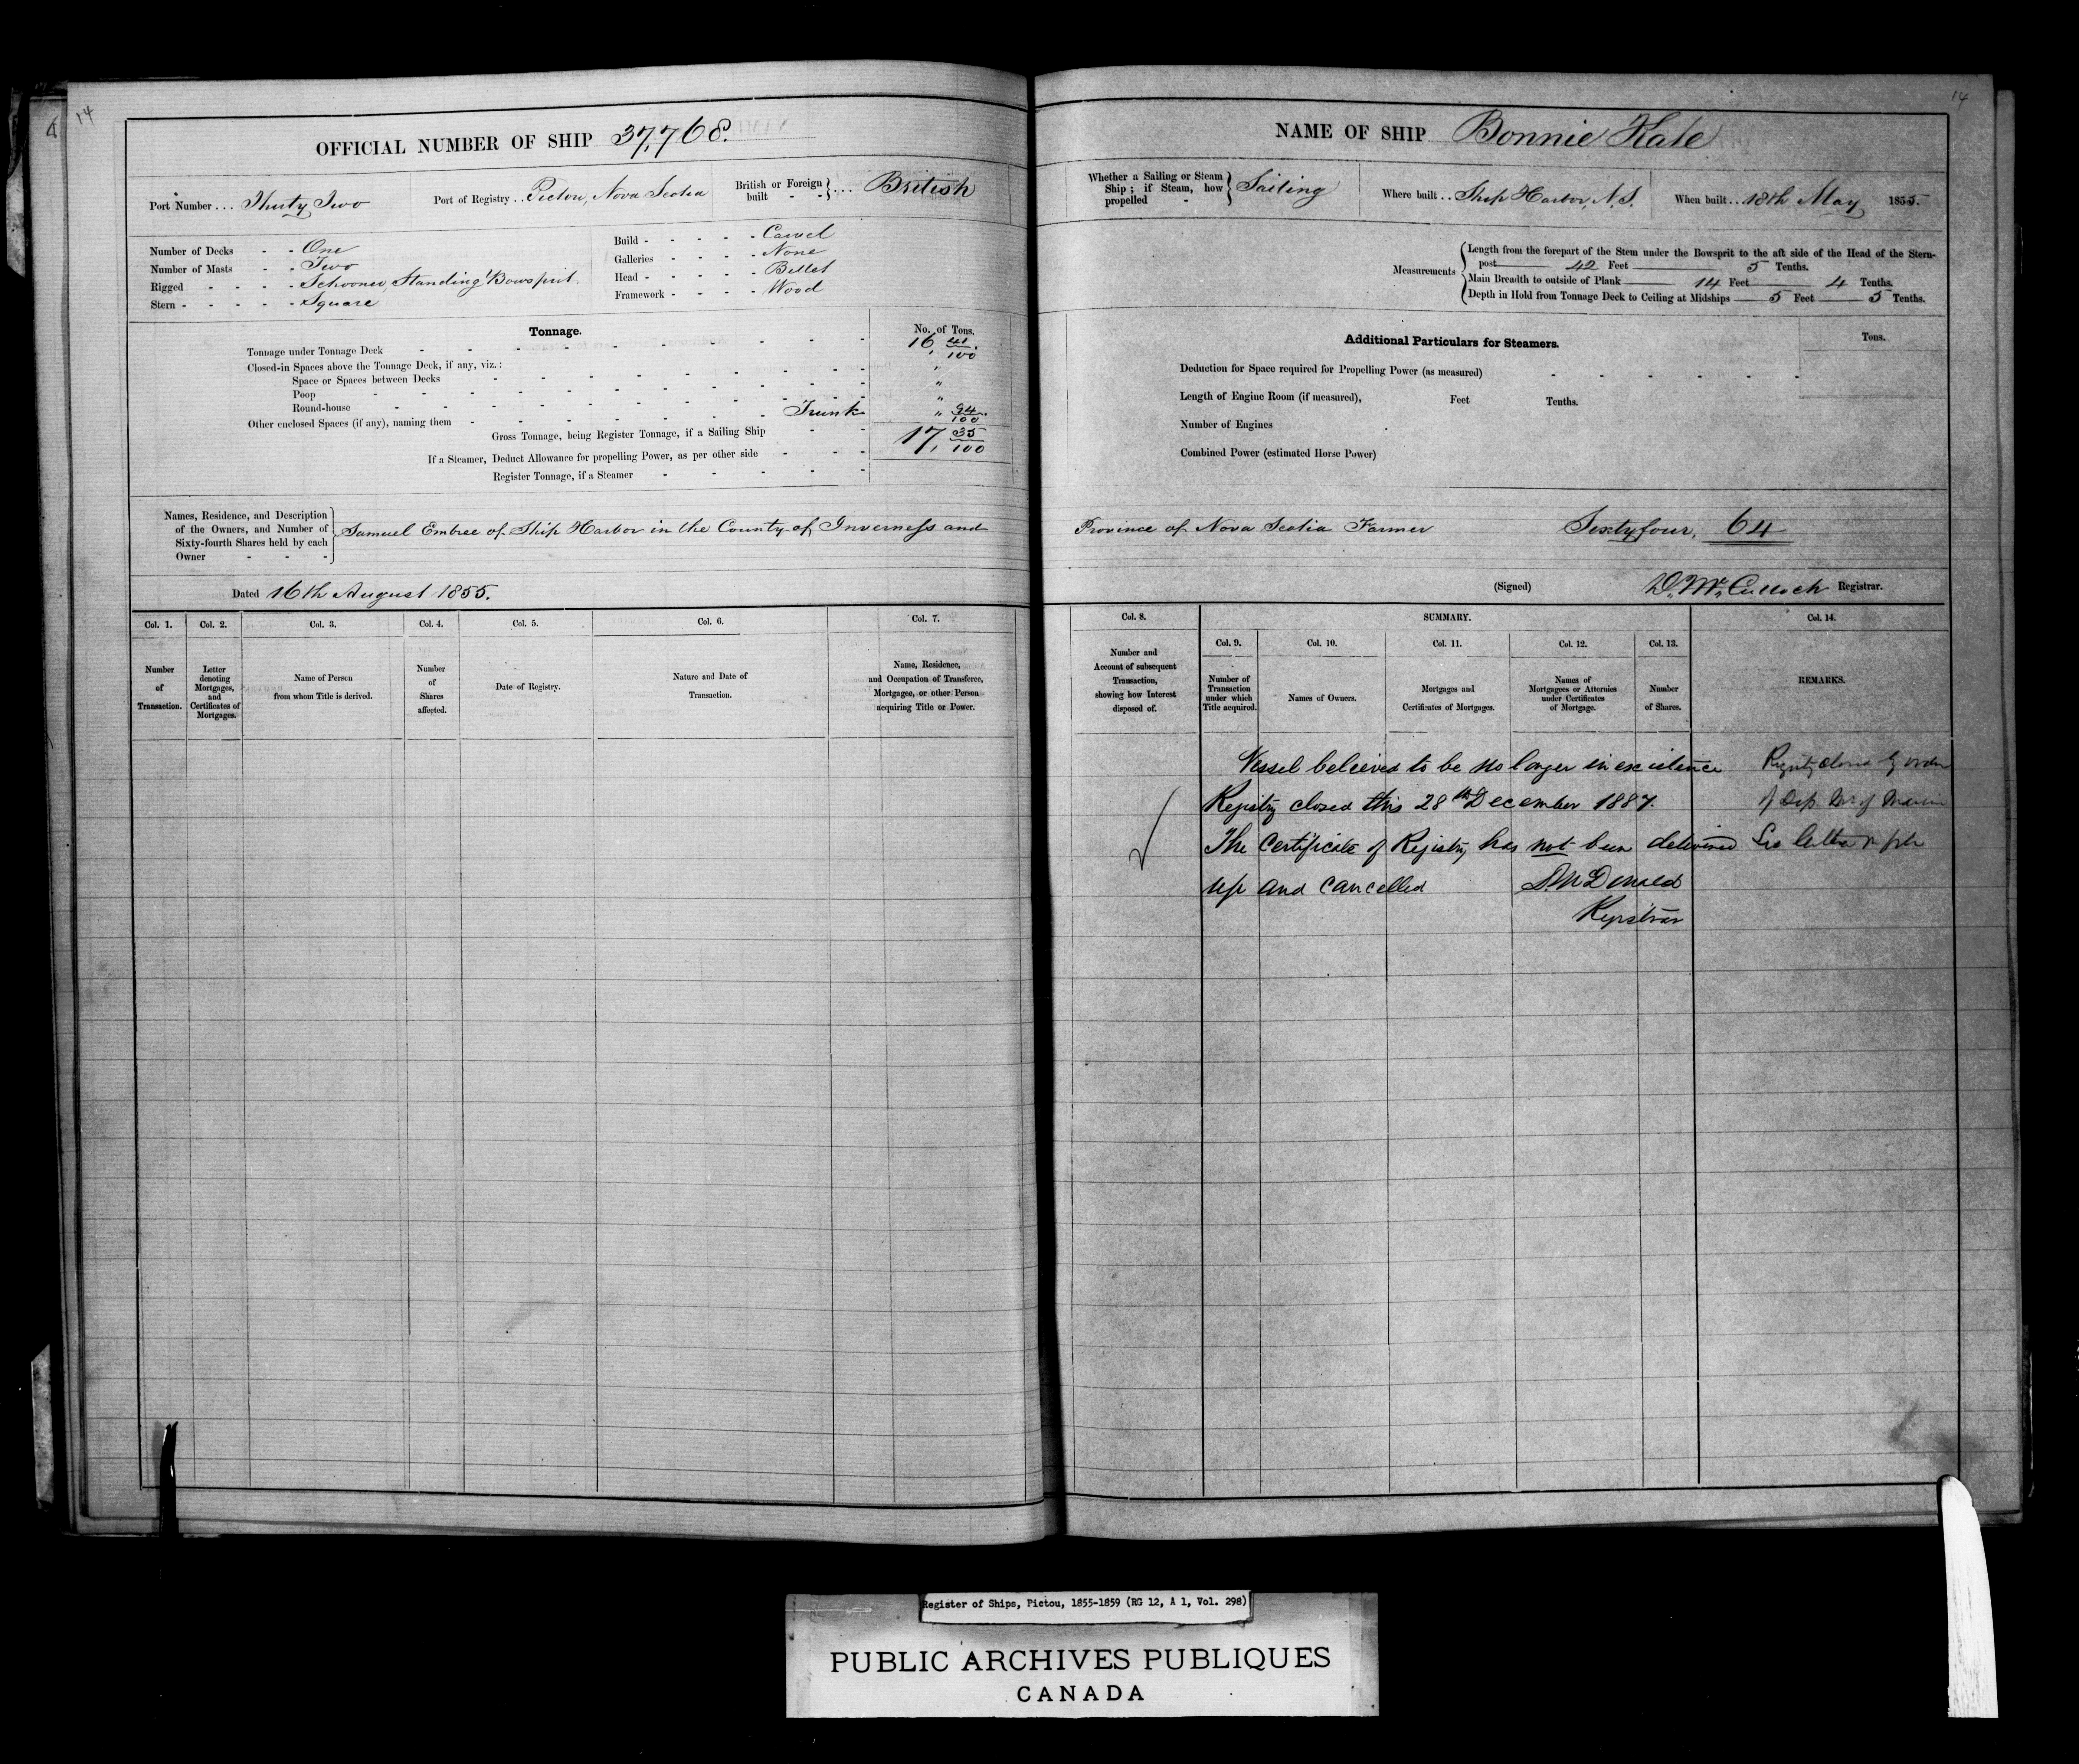 14
OFFICIAL NUMBER OF SHIP 37,768.
Port Number ... Thirty Two
Port of Registry .. Pictou, Nova Scotia
British or Foreign built - - } ... British
Number of Decks - - One
Number of Masts - - Two
Rigged - - - - Schooner, Standing Bowsprit.
Stern - - - - - Square
Build - - - - - Carvel
Galleries - - - - None
Head - - - - - Billet
Framework - - - - Wood
Tonnage.
No. of Tons.
Tonnage under Tonnage Deck 16, 41/100
Closed-in Spaces above the Tonnage Deck, if any, viz.: "
Space or Spaces between Decks "
Poop "
Round-house
Other enclosed Spaces (if any), naming them Trunk " 94/100
Gross Tonnage, being Register Tonnage, if a Sailing Ship 17, 35/100
If a Steamer, Deduct Allowance for propelling Power, as per other side
Register Tonnage, if a Steamer
Names, Residence, and Description
of the Owners, and Number of
Sixty-fourth Shares held by each
Owner - - -
Samuel Embree of Ship Harbor in the County of Inverness and
Dated 16th August 1855.
Col. 1. Col. 2. Col. 3. Col. 4. Col. 5. Col. 6. Col. 7.
Number of Transaction.
Letter denoting Mortgages, and Certificates of Mortgages.
Name of Person from whom Title is derived.
Number of Shares affected.
Date of Registry.
Nature and Date of Transaction.
Name, Residence, and Occupation of Transferee, Mortgagee, or other Person acquiring Title or Power.
14
NAME OF SHIP Bonnie Kate
Whether a Sailing or Steam Ship; if Steam, how propelled - } Sailing
Where built .. Ship Harbor, N.S.
When built .. 18th May 1855.
Measurements
Length from the forepart of the Stem under the Bowsprit to the aft side of the Head of the Stern-
post 42 Feet 5 Tenths.
Main Breadth to outside of Plank 14 Feet 4 Tenths.
Depth in Hold from Tonnage Deck to Ceiling at Midships 5 Feet 5 Tenths.
Additional Particulars for Steamers.
Tons.
Deduction for Space required for Propelling Power (as measured)
Length of Engine Room (if measured), Feet Tenths.
Number of Engines
Combined Power (estimated Horse Power)
Province of Nova Scotia Farmer Sixty four, 64
(Signed) D. McCulloch Registrar.
Col. 8. SUMMARY. Col. 14.
Col. 9. Col. 10. Col. 11. Col. 12. Col. 13.
Number and Account of subsequent Transaction, showing how Interest disposed of.
Number of Transaction under which Title acquired.
Names of Owners.
Mortgages and Certificates of Mortgages.
Names of Mortgagees or Attornies under Certificates of Mortgage.
Number of Shares.
REMARKS.
Vessel beleived to be no longer in existence
Registry closed this 28th December 1887.
The Certificate of Registry has not been delivered
up and cancelled D McDonald
Registrar
Registry closed by order
of Dep. Mr of Marine
See letter
Register of Ships, Pictou, 1855-1859 (RG 12, A 1, Vol. 298)
PUBLIC ARCHIVES PUBLIQUES
CANADA